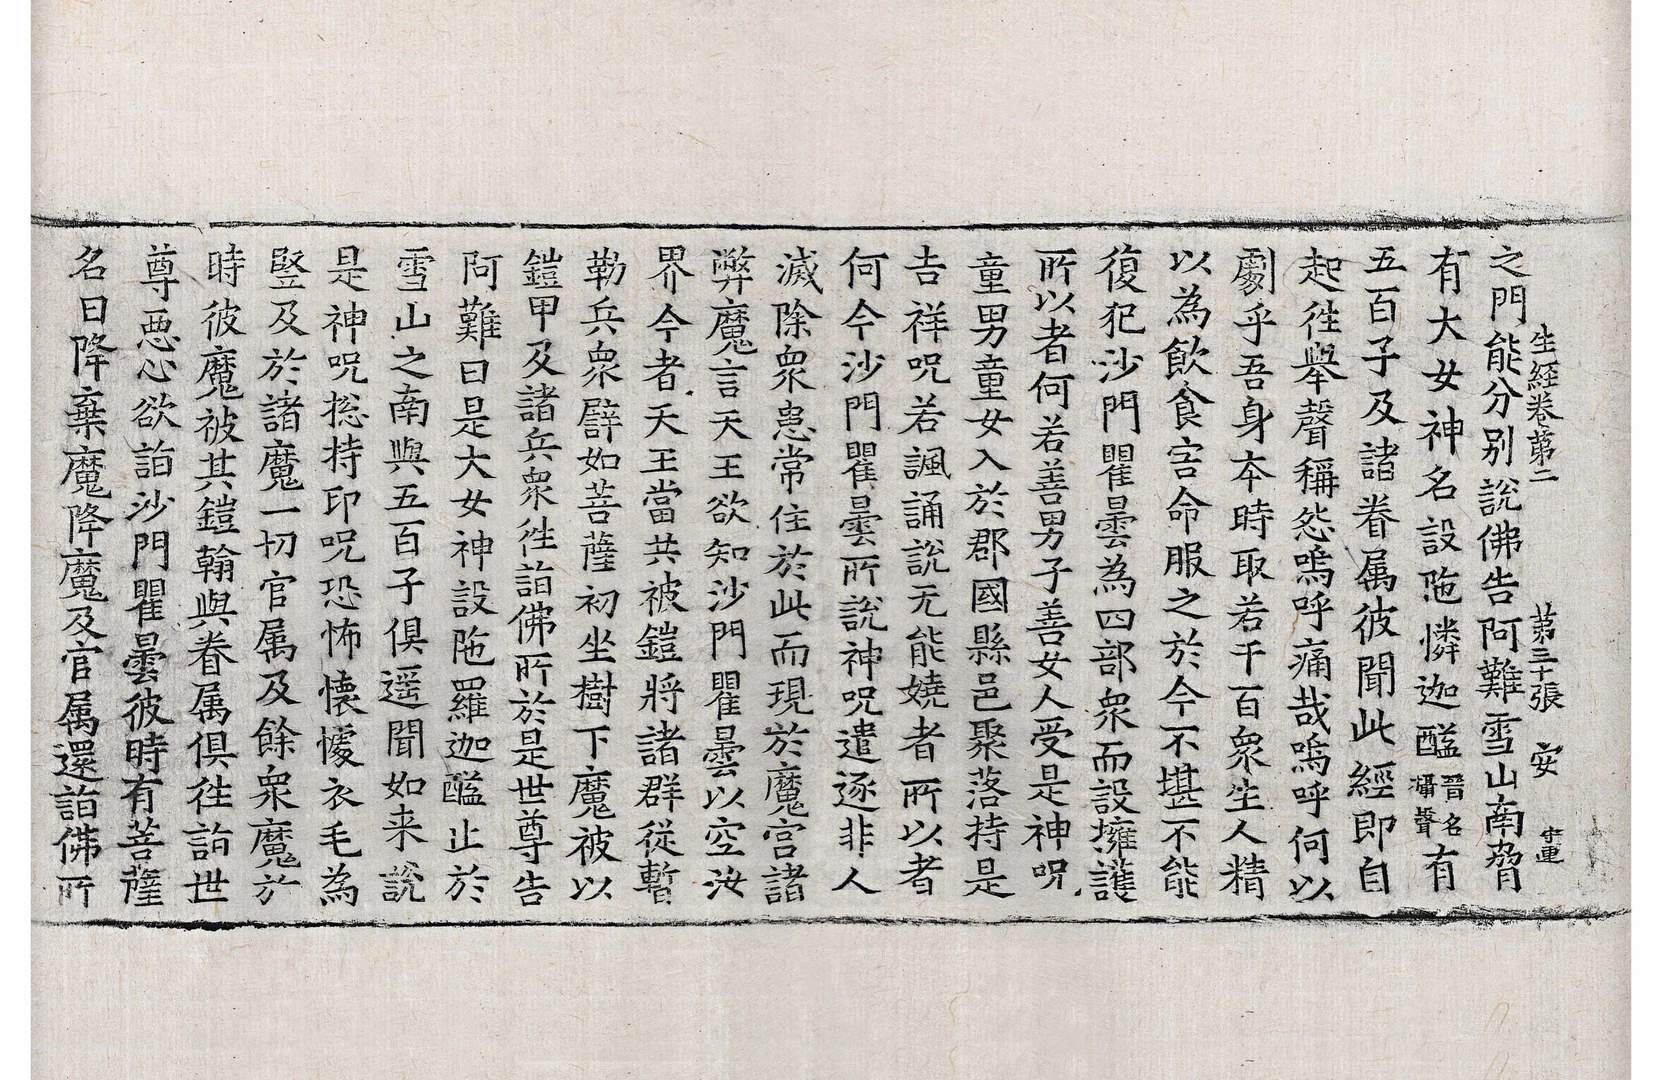 生経卷第二　第三十張　安　宇運
之門能分别說佛告阿難雪山南脅
有大女神名設陁憐迦醯晉名攝聲有
五百子及諸眷属彼聞此經即自
起往舉聲稱怨嗚呼痛哉嗚呼何以
劇乎吾身本時取若干百衆生人精
以為飲食害命服之於今不堪不能
復犯沙門瞿曇為四部衆而設擁護
所以者何若善男子善女人受是神呪
童男童女入於郡國縣邑聚落持是
吉祥呪若諷誦說无能嬈者所以者
何今沙門瞿曇所說神呪遣逐非人
滅除衆患常住於此而現於魔宮諸
弊魔言天王欲知沙門瞿曇以空汝
界今者天王當共被鎧將諸群從暫
勒兵衆譬如菩薩初坐樹下魔被以
鎧甲及諸兵衆往詣佛所於是世尊告
阿難曰是大女神設陁羅迦醯止於
雪山之南與五百子俱遥聞如来說
是神呪揔持印呪恐怖懐懅衣毛為
竪及於諸魔一切官属及餘衆魔於
時彼魔被其鎧翰與眷属俱往詣世
尊惡心欲詣沙門瞿曇彼時有菩薩
名曰降棄魔降魔及官属還詣佛所